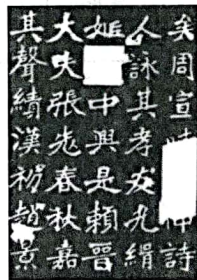 矣周宣仲詩
人詠其孝友光緝
姬中興是賴晉
大夫張老春秋嘉
其聲績漢初趙景